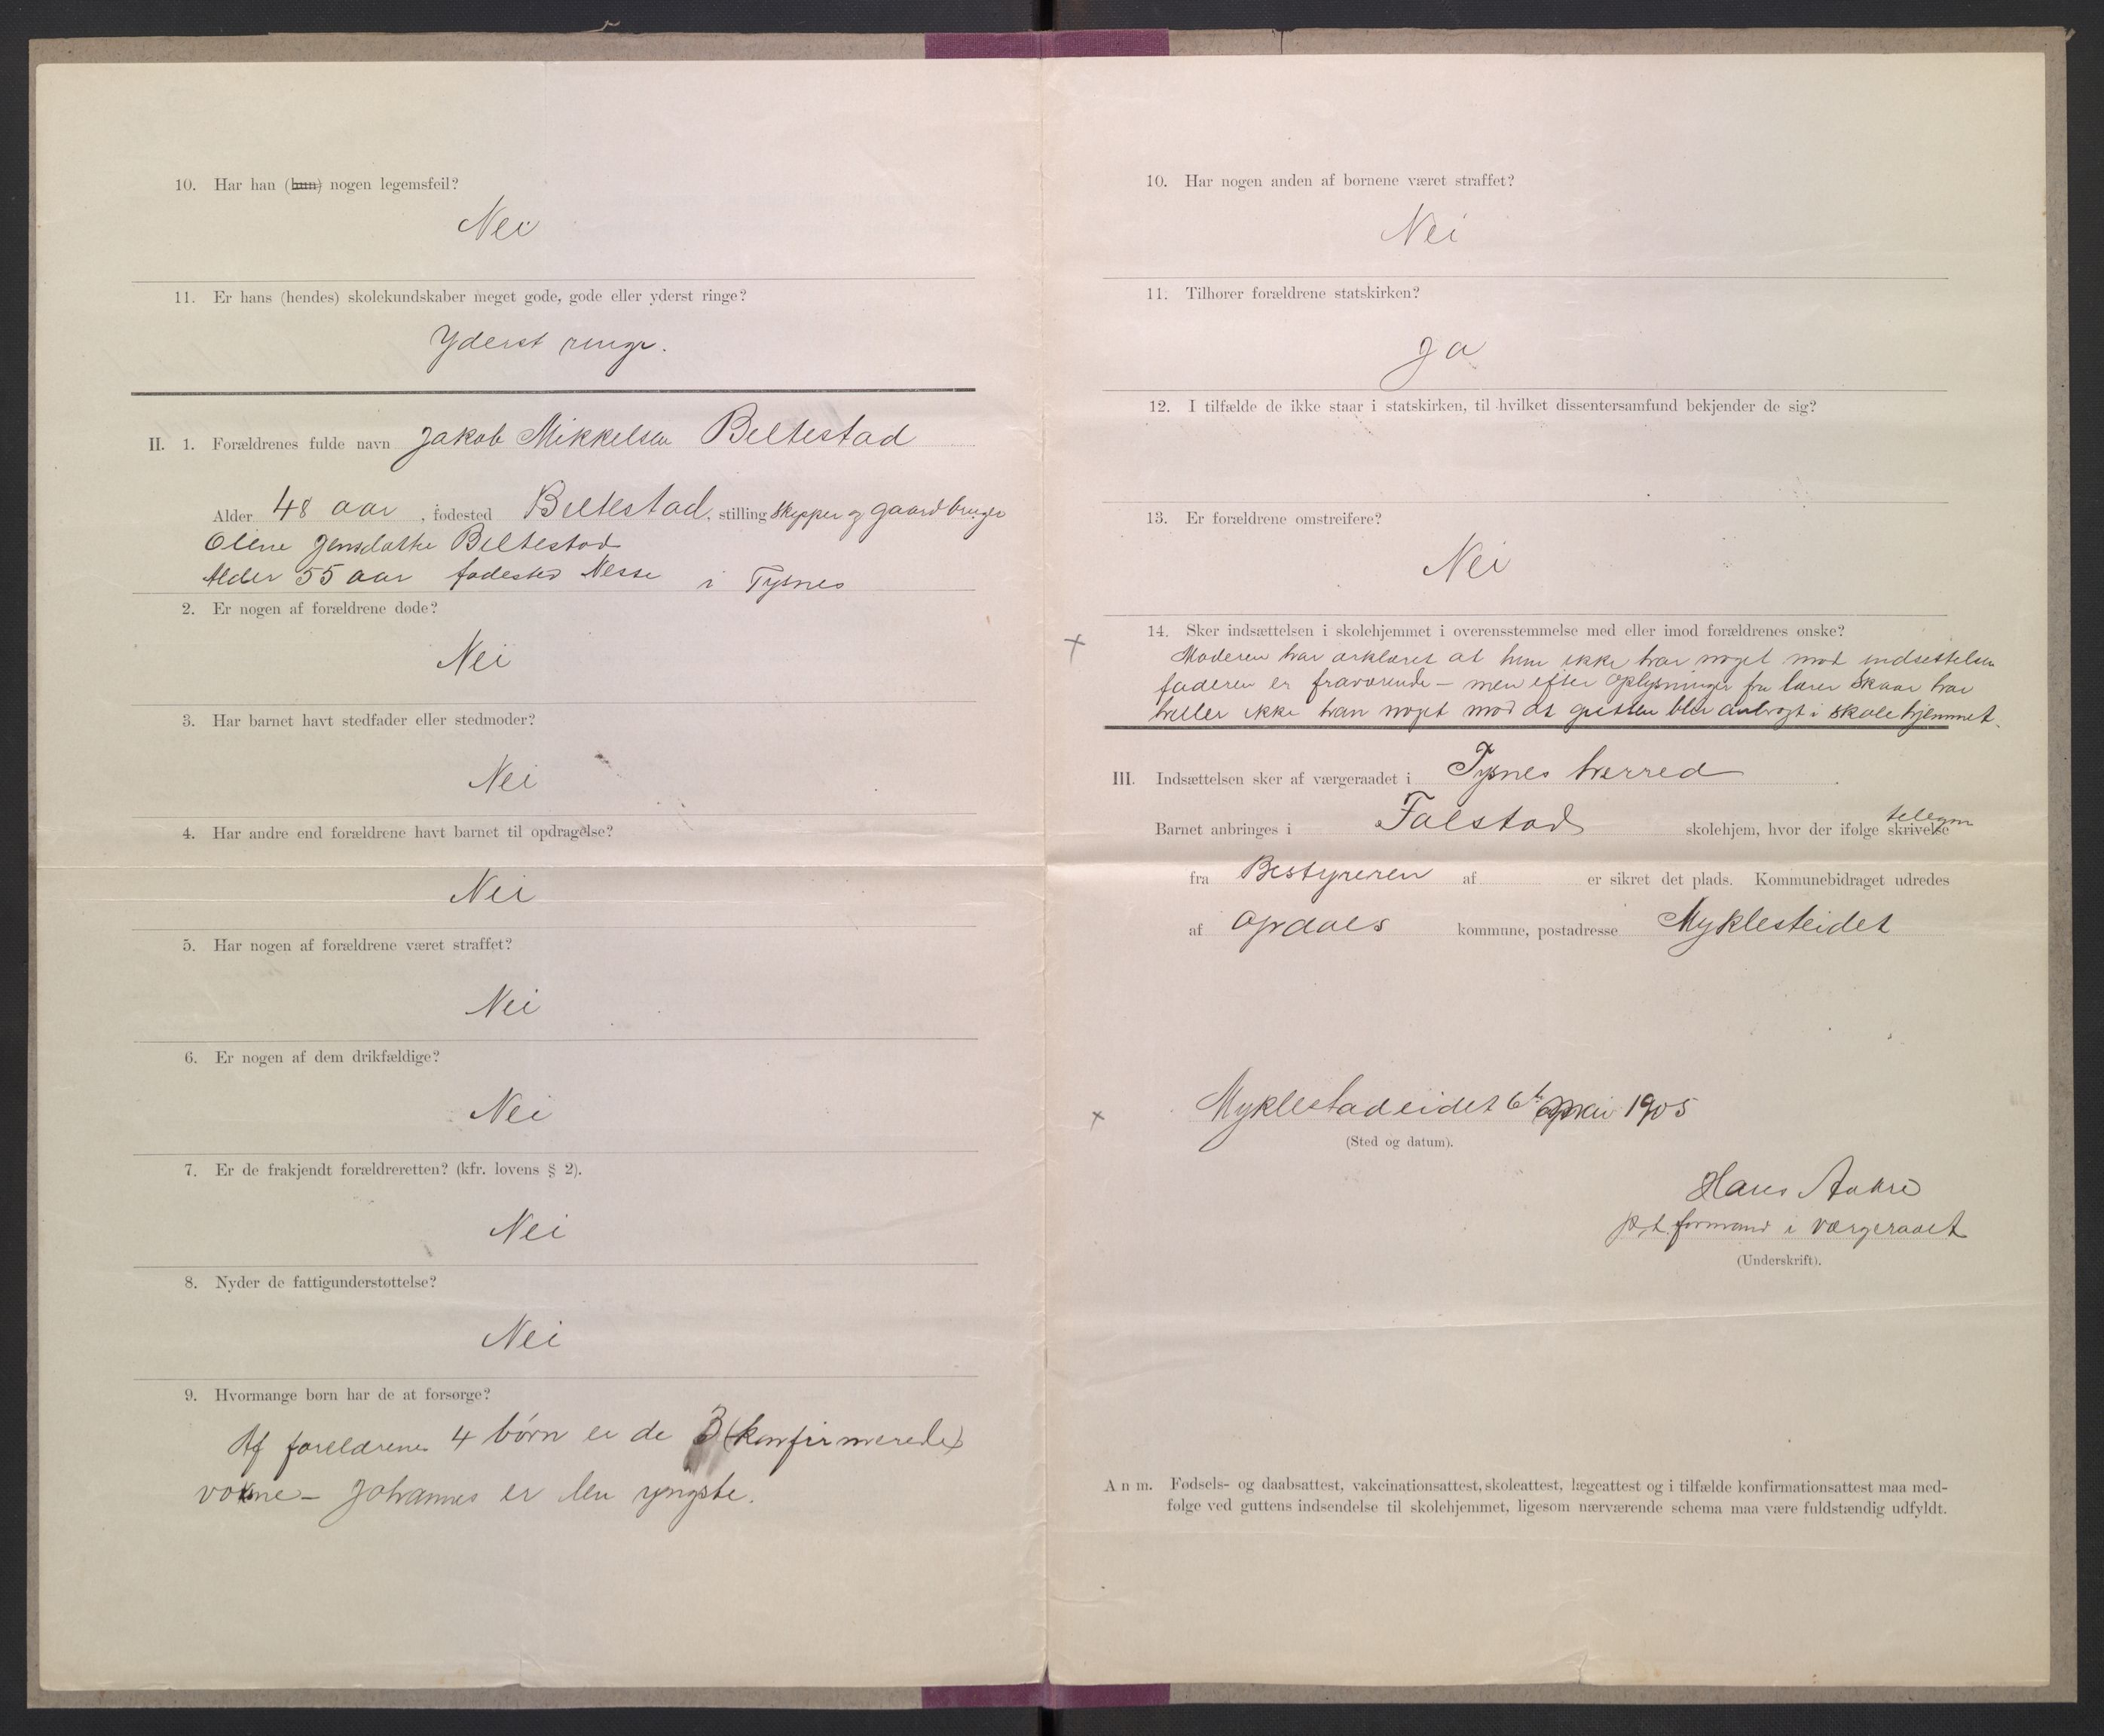 10. Har han (hun) nogen legemsfeil?
Nei
11. Er hans (hendes) skolekundskaber meget gode, gode eller yderst ringe?
Yderst ringe.
II. 1. Forældrenes fulde navn Jakob Mikkelsen Beltestad
Alder 48 aar, fødested Beltestad, stilling Skipper og gaardbruger
Oline Jensdatter Beltestad
Alder 55 aar fødested Nesse i Tysnes
2. Er nogen af forældrene døde?
Nei
3. Har barnet havt stedfader eller stedmoder?
Nei
4. Har andre end forældrene havt barnet til opdragelse?
Nei
5. Har nogen af forældrene været straffet?
Nei
6. Er nogen af dem drikfældige?
Nei
7. Er de frakjendt forældreretten? (kfr. lovens § 2).
Nei
8. Nyder de fattigunderstøttelse?
Nei
9. Hvormange børn har de at forsørge?
Af forældrenes 4 børn er de 3 (konfirmerede)
voksne – Johannes er den yngste.
10. Har nogen anden af børnene været straffet?
Nei
11. Tilhører forældrene statskirken?
Ja
12. I tilfælde de ikke staar i statskirken, til hvilket dissentersamfund bekjender de sig?
13. Er forældrene omstreifere?
Nei
14. Sker indsættelsen i skolehjemmet i overensstemmelse med eller imod forældrenes ønske?
Moderen har erklæret at hun ikke har noget mod indsettelsen
faderen er fraværende – men efter oplysninger fra lærer Skaar har
heller ikke han noget mod at gutten blir anbragt i skolehjemmet.
III. Indsættelsen sker af værgeraadet i Tysnes herred
Barnet anbringes i Falstad skolehjem, hvor der ifølge skrivelse telegm
fra Bestyreren af er sikret det plads. Kommunebidraget udredes
af Opdals kommune, postadresse Myklesteidet
Myklestadeidet 6te mai 1905
(Sted og datum).
Hans Aakre
p.t. formand i værgeraadet
(Underskrift).
Anm. Fødsels- og daabsattest, vakcinationsattest, skoleattest, lægeattest og i tilfælde konfirmationsattest maa med-
følge ved guttens indsendelse til skolehjemmet, ligesom nærværende schema maa være fuldstændig udfyldt.